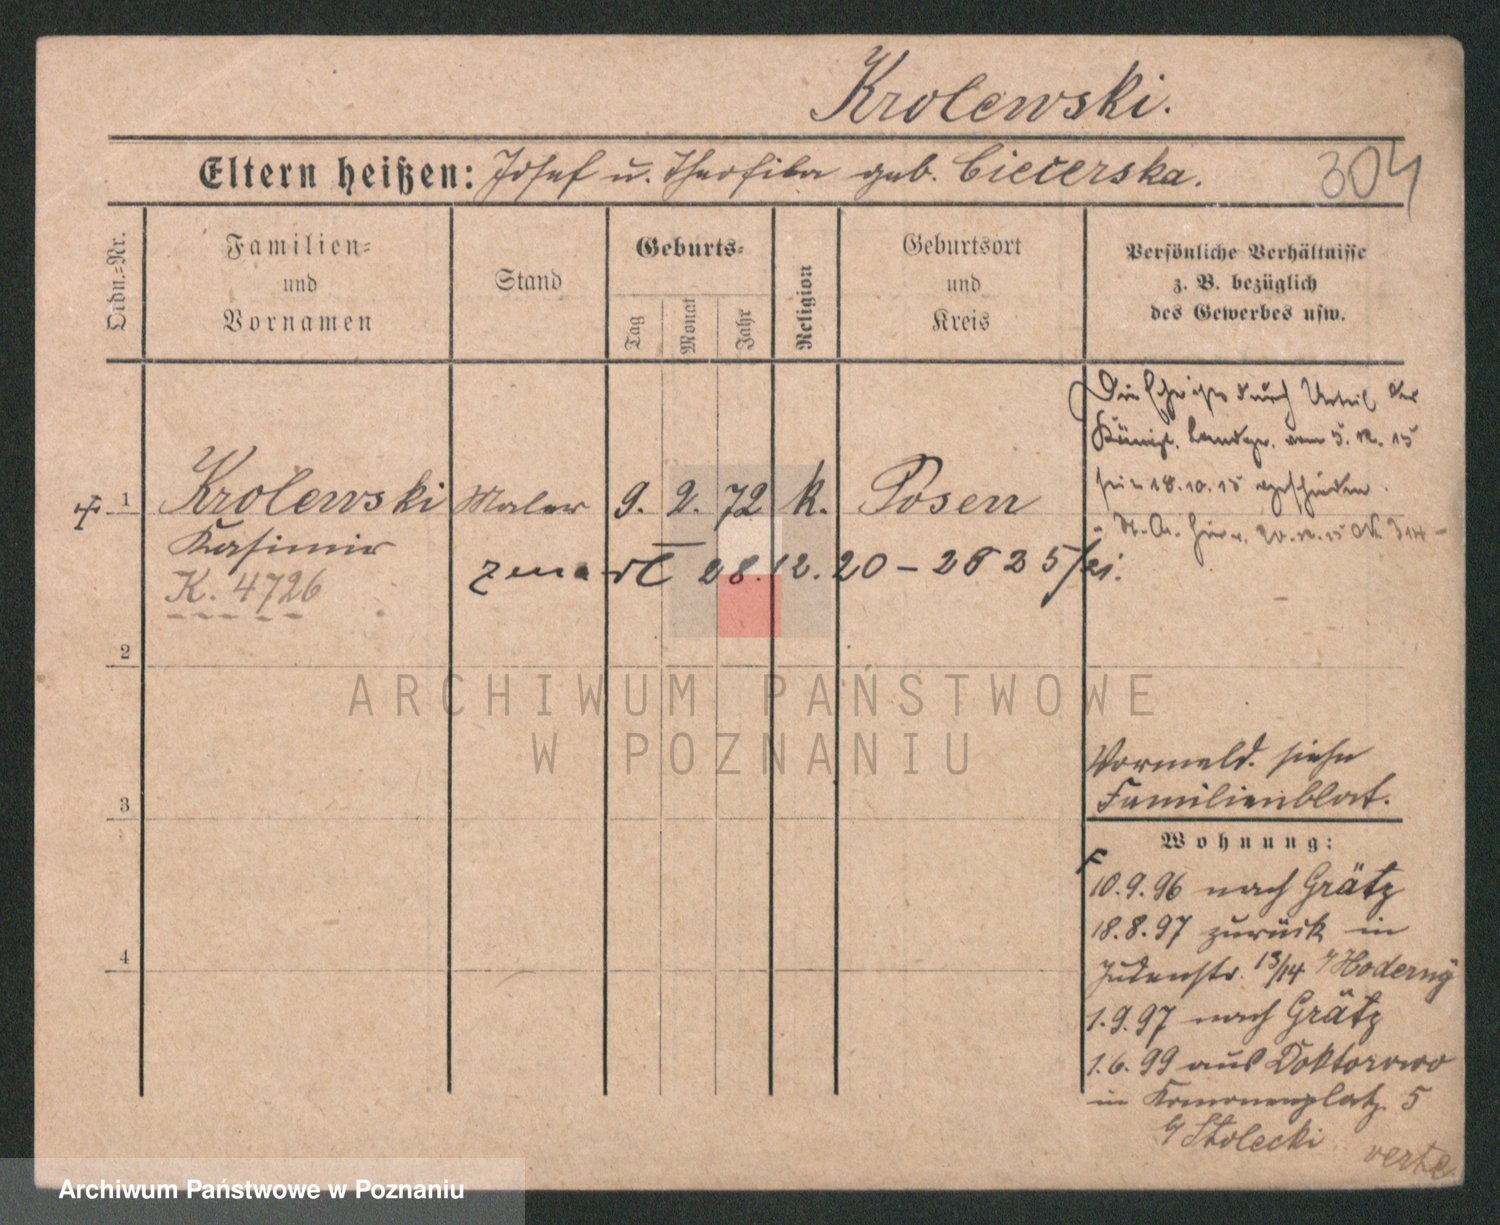 Krolewski.
Eltern heißen: Josef u. Theofila geb. Ciecerska.
304
Ordn.-Nr.
Familien-
und
Vornamen
Stand
Geburts-
Tag
Monat
Jahr
Religion
Geburtsort
und
Kreis
Persönliche Verhältnisse
z. B. bezüglich
des Gewerbes usw.
Die Ehe ist durch Urteil des
Königl. Landger. vom 5. 12. 15
seit 18.10.15 geschieden.
St. A. hier v. 20.12.15
1 Krolewski Maler 9. 2. 72 k. Posen
Kasimir
zmarł 28.12.20 – 2825/21.
K. 4726
2
3
4
Vormeld. siehe
Familienblat.
Wohnung:
10.9.96 nach Grätz
18.8.97 zurück in
Judenstr. 13/14
1.9.97 nach Grätz
1.6.99 aus Doktorowo
in platz 5
b/ Stolecki
verte
ARCHIWUM PAŃSTWOWE
W POZNANIU
Archiwum Państwowe w Poznaniu